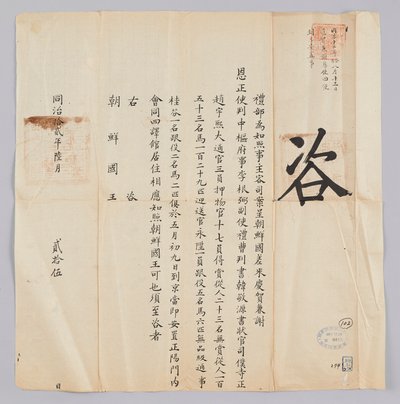 咨
禮部爲知照事主客司案呈朝鮮國差來慶賀兼謝
恩正使判中樞府事李根弼副使禮曹判書韓敬源書狀官司僕寺正
趙宇熙大通官三員押物官十七員得賞從人二十三名無賞從人一百
五十三名馬一百二十九匹迎送官永陞一員跟役五名馬六匹無品級通事
桂谷一名跟役二名馬二匹俱於五月初九日到京當即安置正陽門內
會同四譯館居住相應知照朝鮮國王可也須至咨者
右咨
朝鮮國王
同治拾貳年陸月 貳拾伍 日
(102)